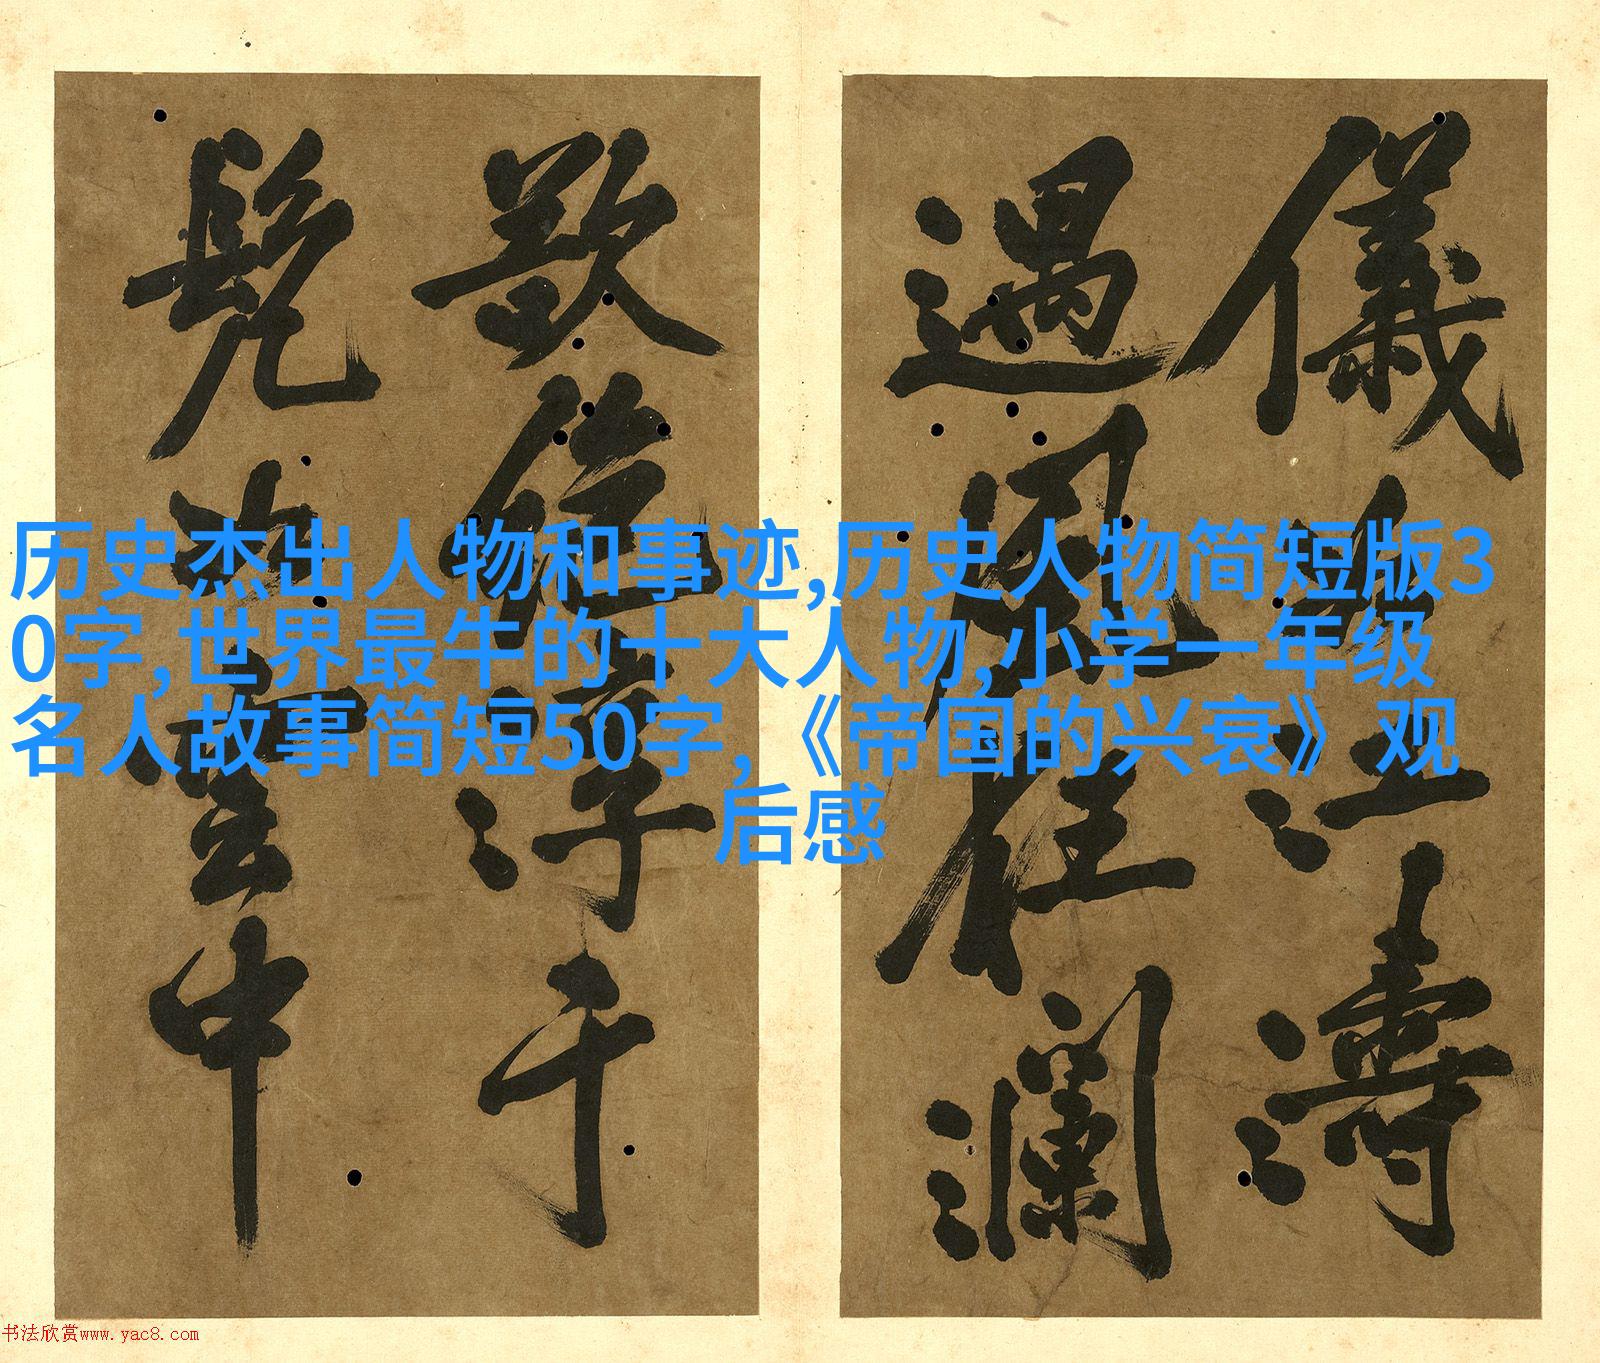 儀江濤
遇風狂瀾
淳于
髡中
历史杰出人物和事迹,历史人物简短版3
0字,世界最牛的十大人物,小学一年级
名人故事简短50字,《帝国的兴衰》观
后感
书法欣赏www.yac8.com